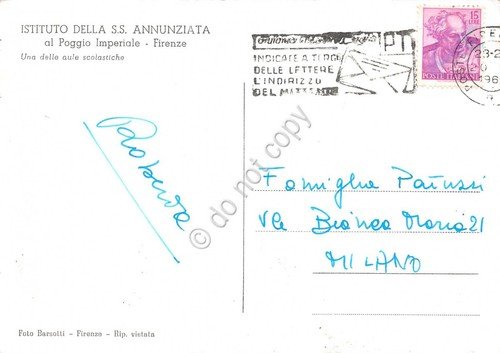 ISTITUTO DELLA S.S. ANNUNZIATA
al Poggio Imperiale - Firenze
Una delle aule scolastiche
INDICATE A TERGO
DELLE LETTERE
L'INDIRIZZO
DEL MITTENTE
PT
15
LIRE
POSTE ITALIANE
23-2
196
Roberta
Famiglia Patussi
Vle Bianca Maria 21
MILANO
© do not copy
Foto Barsotti - Firenze - Rip. vietata